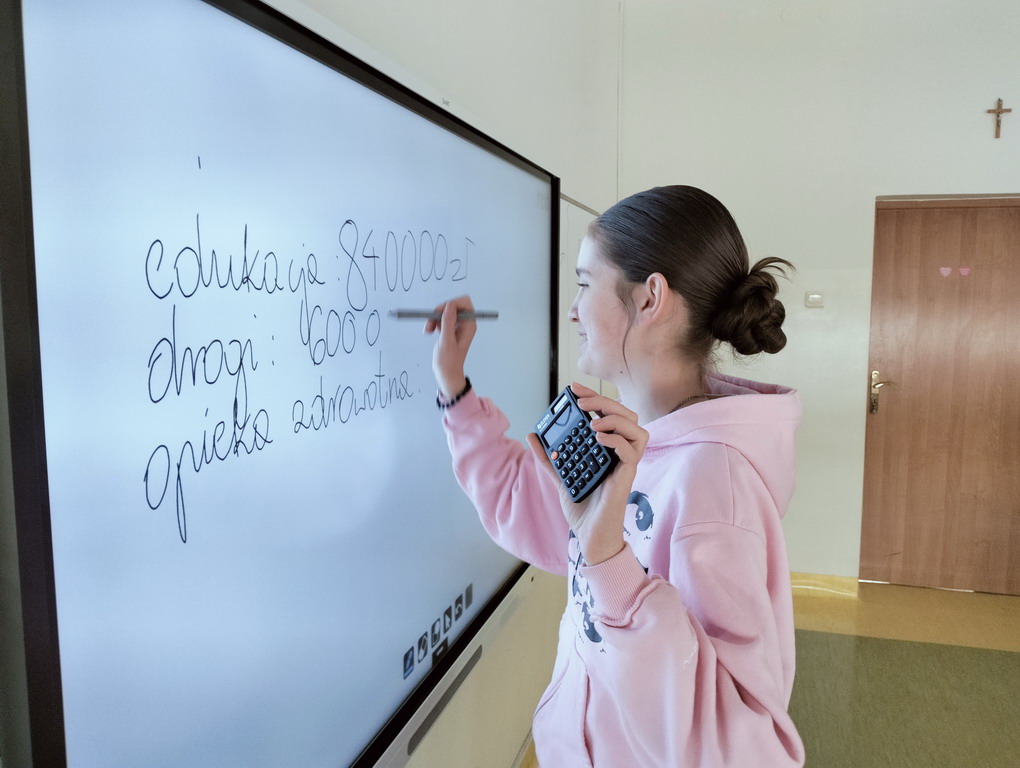 edukacja : 840000zł
drogi :
opieka zdrowotna :